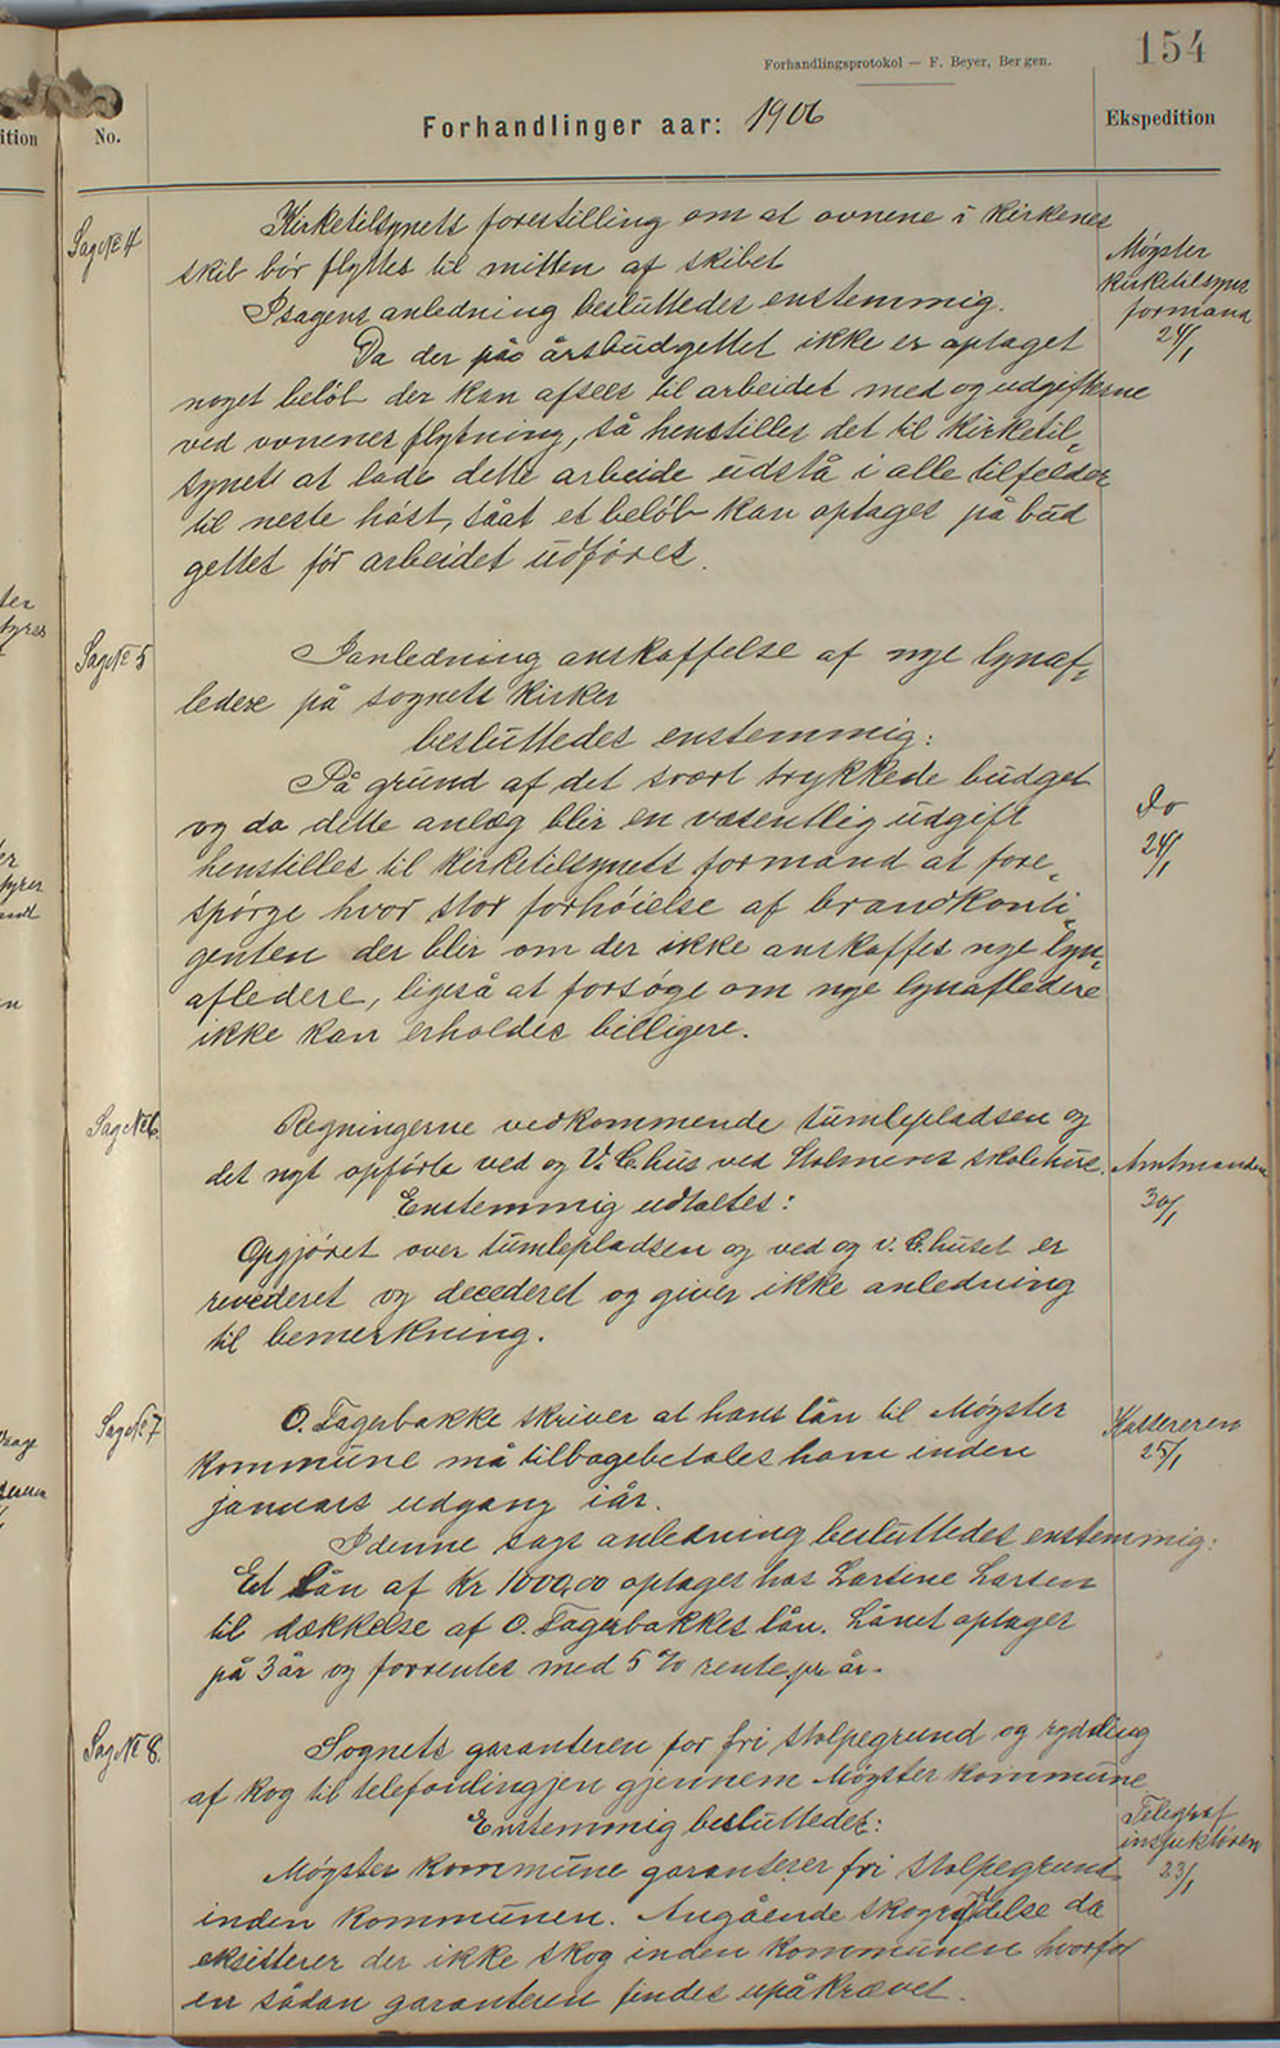 154
Forhandlingsprotokol — F. Beyer, Bergen.
No.
Forhandlinger aar: 1906
Ekspedition
ition
Sag № 4
Kirketilsynets forestilling om at ovnene i kirkenes
skib bør flyttes til mitten af skibet
I sagens anledning besluttedes enstemmig.
Da der på årsbudgettet ikke er optaget
noget beløb der kan afsees til arbeidet med og udgifterne
ved ovnenes flytning, så henstilles det til Kirketil„
synets at lade dette arbeide udstå i alle tilfelder
til neste høst, såat et beløb kan optages på bud
gettet før arbeidet udføres.
Møgster
kirketilsyns
formand
24/1
Sag № 5
I anledning anskaffelse af nye lynaf„
ledere på sognets kirker
besluttedes enstemmig:
På grund af det svært trykkede budget
og da dette anlæg blir en væsentlig udgift
henstilles til kirketilsynets formand at fore„
spørge hvor stor forhøielse af brandkonti„
genten der blir om der ikke anskaffes nye lyn„
afledere, ligeså at forsøge om nye lynafledere
ikke kan erholdes billigere.
Do
24/1
Sag № 6.
Regningerne vedkommende tumlepladsen og
det nyt opførte ved og V. C. hus ved Stolmens skolehus.
Enstemmig udtaltes:
Opgjøret over tumlepladsen og ved og v. C. huset er
revederet og decederet og giver ikke anledning
til bemerkning.
Amtmanden
30/1
Sag № 7
O. Fagerbakke skriver at hans lån til Møgster
kommune må tilbagebetales ham inden
januars udgang iår.
I denne sags anledning besluttedes enstemmig:
Et Lån af Kr 1000,00 optages hos Larsine Larsen
til dækkelse af O. Fagerbakkes lån. Lånet optages
på 3 år og forrentes med 5 % rente pr år.
Kassereren
25/1
Sag № 8.
Sognets garanteren for fri stolpegrund og rydding
af kog til telefonlingjen gjennem Møgster kommune
Enstemmig besluttedes:
Møgster kommune garanterer fri stolpegrund
inden kommunen. Angående skogrydelse da
eksisterer der ikke skog inden kommunen hvorfor
en sådan garanteren findes upåkrævet.
Telegraf
inspektøren
23/1